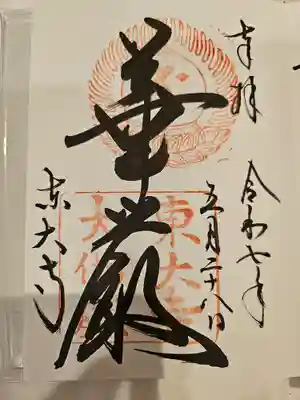 奉拝
令和七年
五月二十八日
華嚴
東大寺
東大寺
大仏殿